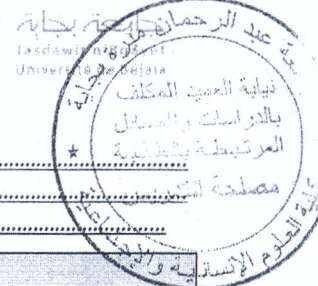 جامعة بجاية
Tasdawit n Bgayet
Université de Béjaïa
نيابة العميد المكلف
بالدراسات والمسائل
المرتبطة بالطلبة
مصلحة التدريس
كلية العلوم الإنسانية والاجتماعية